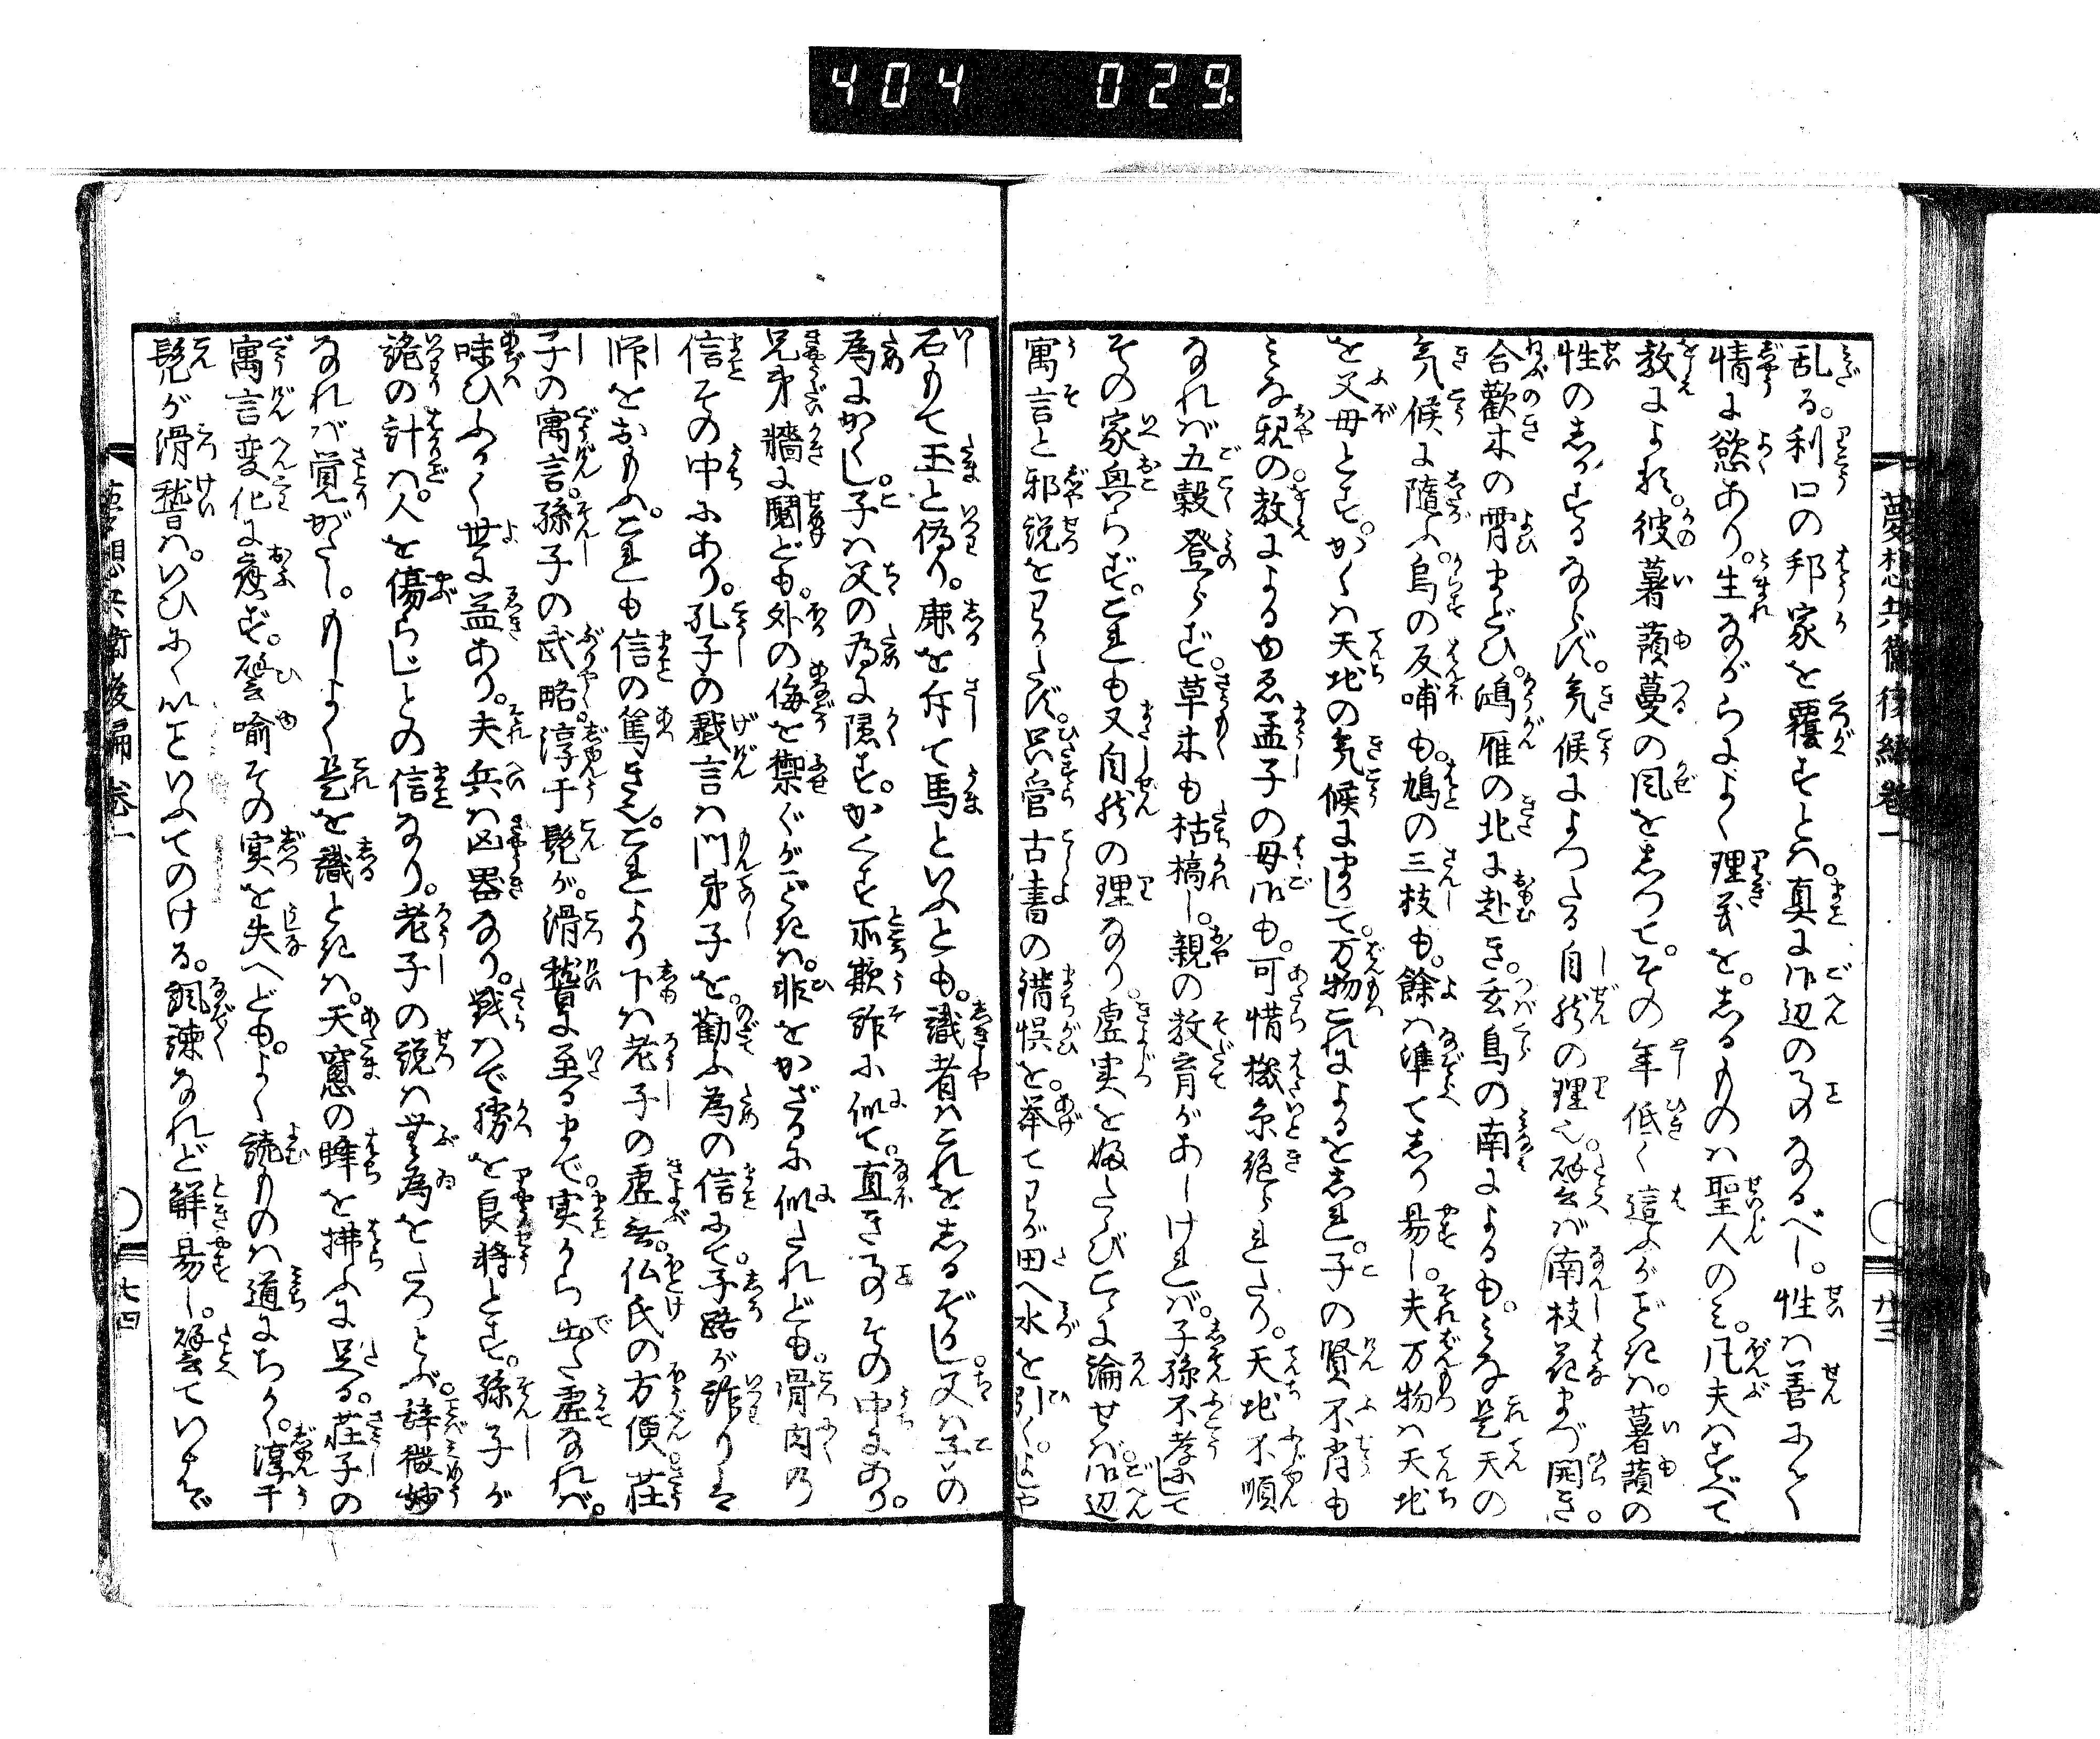 404 029
夢想兵衛後編巻一
乱る。利口の邦家を覆すとは。真に御辺の事なるべし。性は善にして
情に慾あり。生ながらによく理義を。しるものは聖人のミ。凡夫はすべて
教による。彼薯蕷蔓の風をしつて。その年低く這ふがごときは。薯蕷の
性のしかするならず。気候によつたる自然の理也。譬ば南枝花まづ開き。
合歓木の宵まどひ。鴻雁の北に赴き。玄鳥の南によるも。ミな是天の
気候に随ふ。烏の反哺も。鳩の三枝も。餘は準てしり易し。夫万物は天地
を父母とす。かくは天地の気候にまして。万物これによるをしれ。子の賢不肖も
ミな親の教によるゆゑ孟子の母御も。可惜機糸絶られたり。天地不順
なれば五穀登らず。草木も枯槁し。親の教育があしければ。子孫不孝にして
その家興らず。これも又自然の理なり。虚実を媿たびこゝに論せば御辺
寓言と邪説をわきたず。只管古書の謬悞を。挙てわが田へ水を引く。よや
廿三
石もて玉と偽り。鹿を斥て馬といふとも。識者はこれをしるぞかし。父は子の
為にかくし。子は父の為に隠す。かくす所欺詐に似て。直き事その中にあり。
兄弟牆に鬩ども。外の侮を禦ぐがごときは。非をかざるに似たれども。骨肉の
信その中にあり。孔子の戯言は門弟子を。勸ふ為の信にて。子路が詐りは
師をおもふ。これも信の篤き也。これより下は老子の虚無。仏氏の方便。荘
子の寓言。孫子の武略淳于髡が。滑稽に至るまで。実から出た虚なれば。
味ひふかく世に益あり。夫兵は凶器なり。戦はで勝を良将とす。孫子が
詭の計は。人を傷らじとの信なり。老子の説は無為をたつとぶ。辞微妙
なれば覚がたし。もしよく是を識ときは。天窓の蜂を拂ふに足る。荘子の
寓言変化に應ず。譬喩その実を失へども。よく読ものは道にちかく。淳于
髡が滑稽は。いひにくいことといふてのける。諷諫なれど解易し。譬ていはゞ
夢想兵衛後編巻一
七四